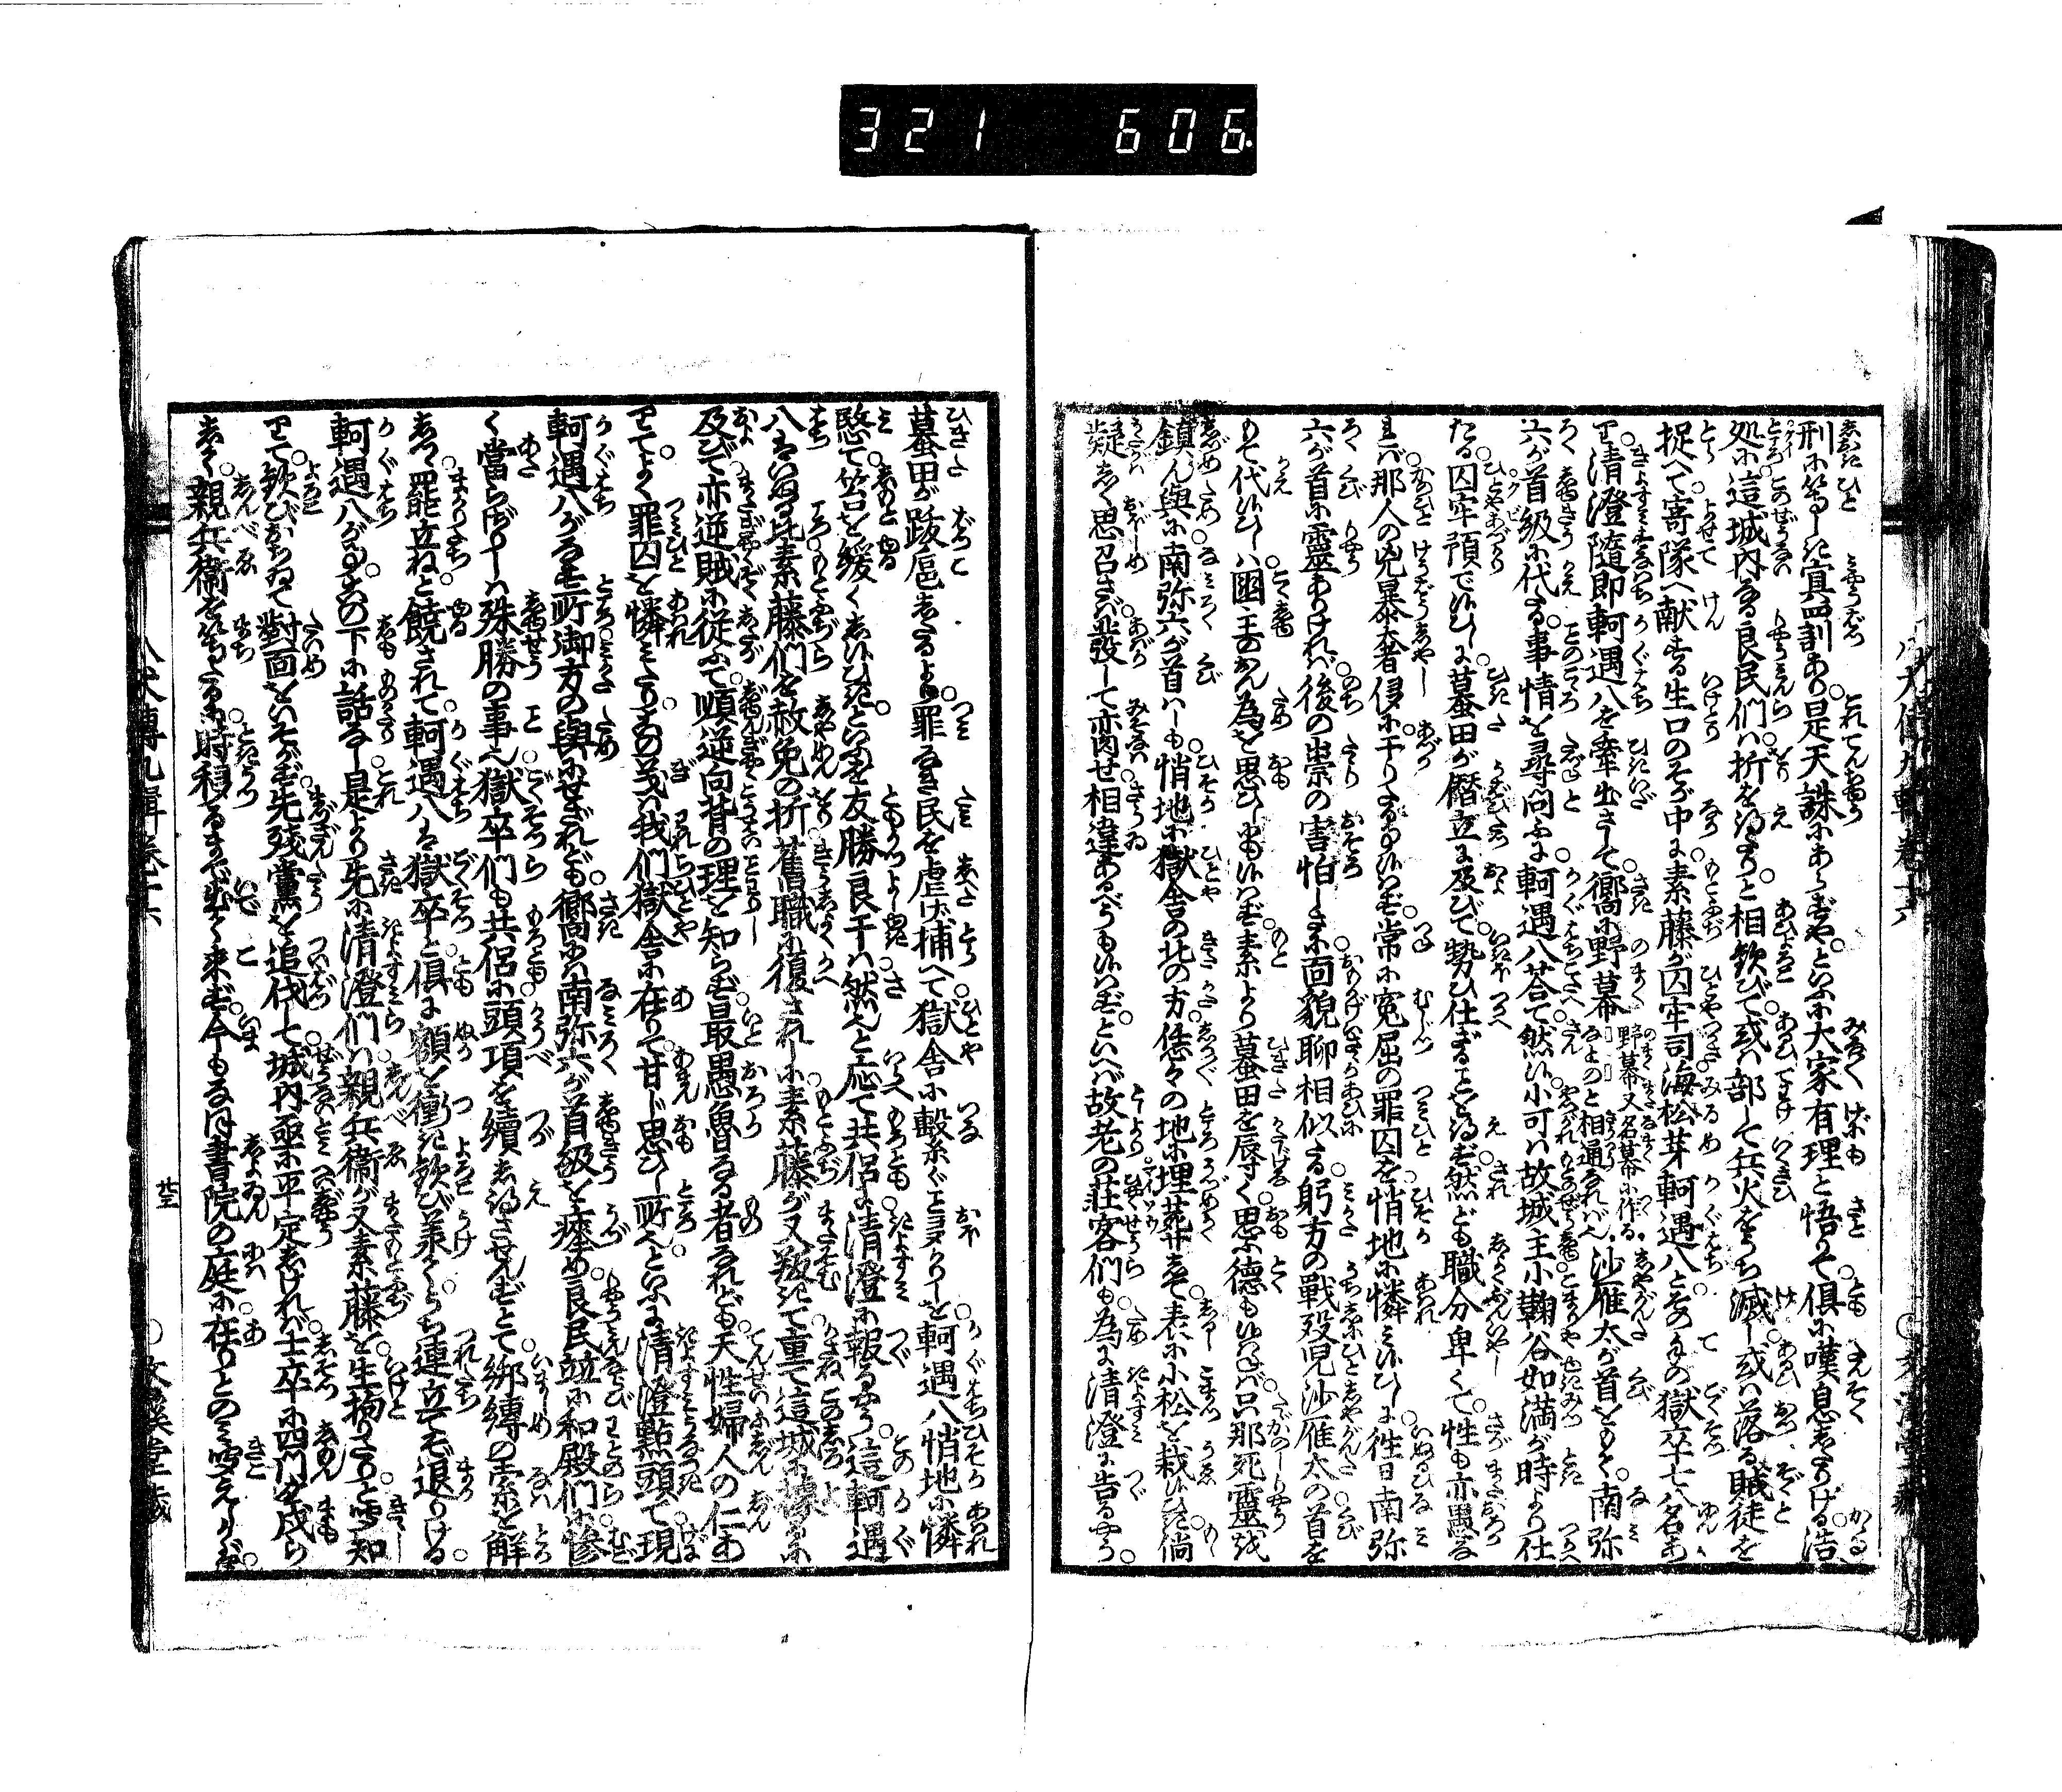 321 606
刑に等しき冥罰あり是天誅にあらずやといふに大家有理と悟りて俱に嘆息したりける浩
処に這城內なる良民們は折を得たりと相歓びて或は部して兵火をうち滅し或は落る賊徒を
捉へて寄隊へ献する生口のそが中に素藤が囚牢司海松芽軻遇八とその手の獄卒七八名あ
り清澄随即軻遇八を牽出さして嚮に野幕 野幕又名幕に作るなとのと相通ふなればなり 沙雁太が首をもて南弥
六が首級に代たる事情を尋問ふに軻遇八答て然ん候小可は故城主小鞠谷如満が時より仕
たる囚牢預でひしに蟇田が僭立に及びて勢ひ仕ざることを得ず然ども職分卑くて性も亦愚な
れば那人の兇暴奢侈に干りたる事はず常に冤屈の罪囚を悄地に憐みひしに往日南弥
六が首に霊ありければ後の祟の害怕しさに面貌聊相似たる躬方の戦歿児沙雁太の首を
もて代ひしは国主のおん為を思ひしにもはず素より蟇田を辱く思ふ徳もはねば只那死霊を
鎮ん与に南弥六が首はしも悄地に獄舎の北の方恁々の地に埋葬せて表に小松を栽ひき倘
疑しく思召さば発して亦䏮せ相違あるべうもはずといへば故老の荘客們も為に清澄に告るやう
蟇田が跋扈したるより罪なき民を虐げ捕へて獄舎に繫ぐこと多かりしを軻遇八悄地に憐
愍て笞を緩くしひきといふを友勝良干は然んと応て共侶に清澄に報るやう這軻遇
八はいぬる比素藤們を赦免の折旧職に復されしに素藤が又叛きて重て這城に拠るに
及びて亦逆賊に従ふて順逆向背の理を知らず最愚魯なる者なれども天性婦人の仁あ
りてよく罪囚を憐みたりその義は我們獄舎に在りて甘じ思ひし所といふに清澄點頭て現
軻遇八がなせし所御方の与にせざれども嚮には南弥六が首級を瘞め良民並に和殿們に惨
く当らざりしは殊勝の事也獄卒們も共侶に頭項を続し得させんずとて綁縛の索を解
して罷立ねと饒されて軻遇八は獄卒と俱に額を衝き歓び承てうち連立てぞ退りける
軻遇八がこの下に話なし是より先に清澄們は親兵衛が又素藤を生拘りたりと聞知
りて歓びおちゐて対面をいそがず先残党を追伐して城內亟に平定しければ士卒に四門を戍ら
して親兵衛を等たるに時移るまでまだ来ず今もなほ書院の庭に在りとのみ聞えしかば
八犬傳九輯卷十六
廿三
文溪堂藏